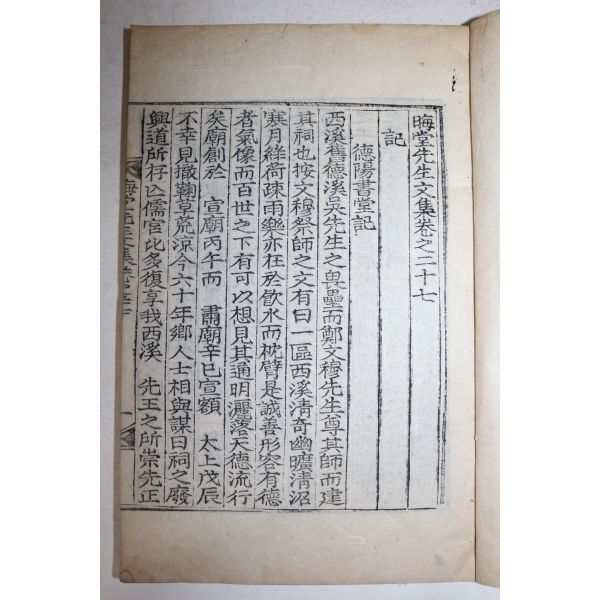 晦堂先生文集卷之二十七
記
德陽書堂記
西溪舊德溪吳先生之畏壘而鄭文穆先生尊其師而建
其祠也按文穆祭師之文有曰一區西溪淸奇幽曠淸沼
寒月綠荷疎雨樂亦在於飮水而枕臂是誠善形容有德
者氣像而百世之下有可以想見其通明灑落天德流行
矣廟創於 宣廟丙午而 肅廟辛巳宣額 太上戊辰
不幸見撤鞠草荒凉今六十年鄕人士相與謀曰祠之廢
興道所存亾儒宮比多復享我西溪 先王之所崇先正